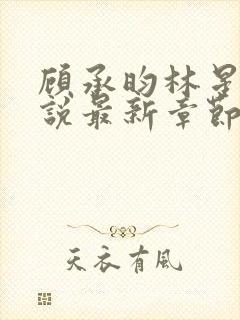 顾承昀林星
說最新章節
天衣有風